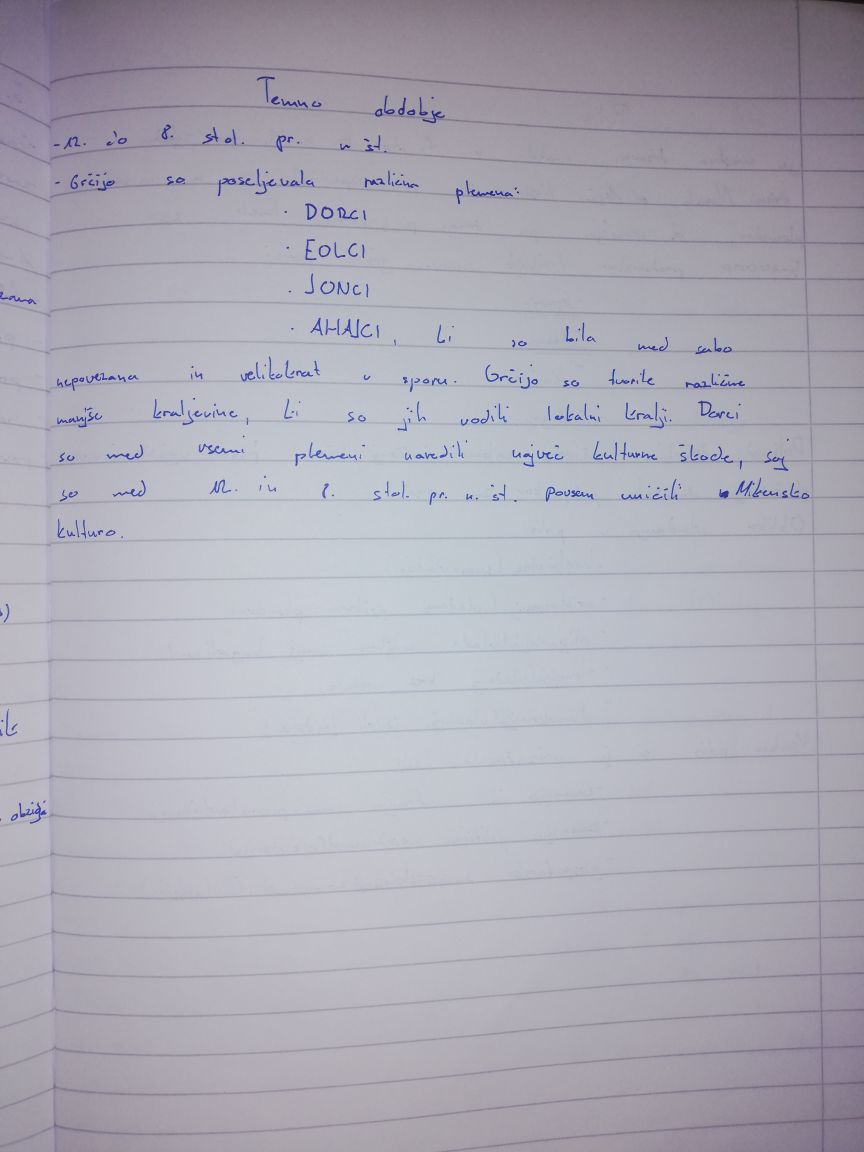 Temno obdobje
- 12. do 8. stol. pr. n št.
- Grčijo so poseljevala različna plemena:
· DORCI
· EOLCI
· JONCI
· AHAJCI, ki so bila med sabo
nepovezana in velikokrat v sporu. Grčijo so tvorile različne
manjše kraljevine, ki so jih vodili lokalni kralji. Dorci
so med vsemi plemeni naredili največ kulturne škode, saj
so med 12. in 8. stol. pr. n. št. povsem uničili Mikensko
kulturo.